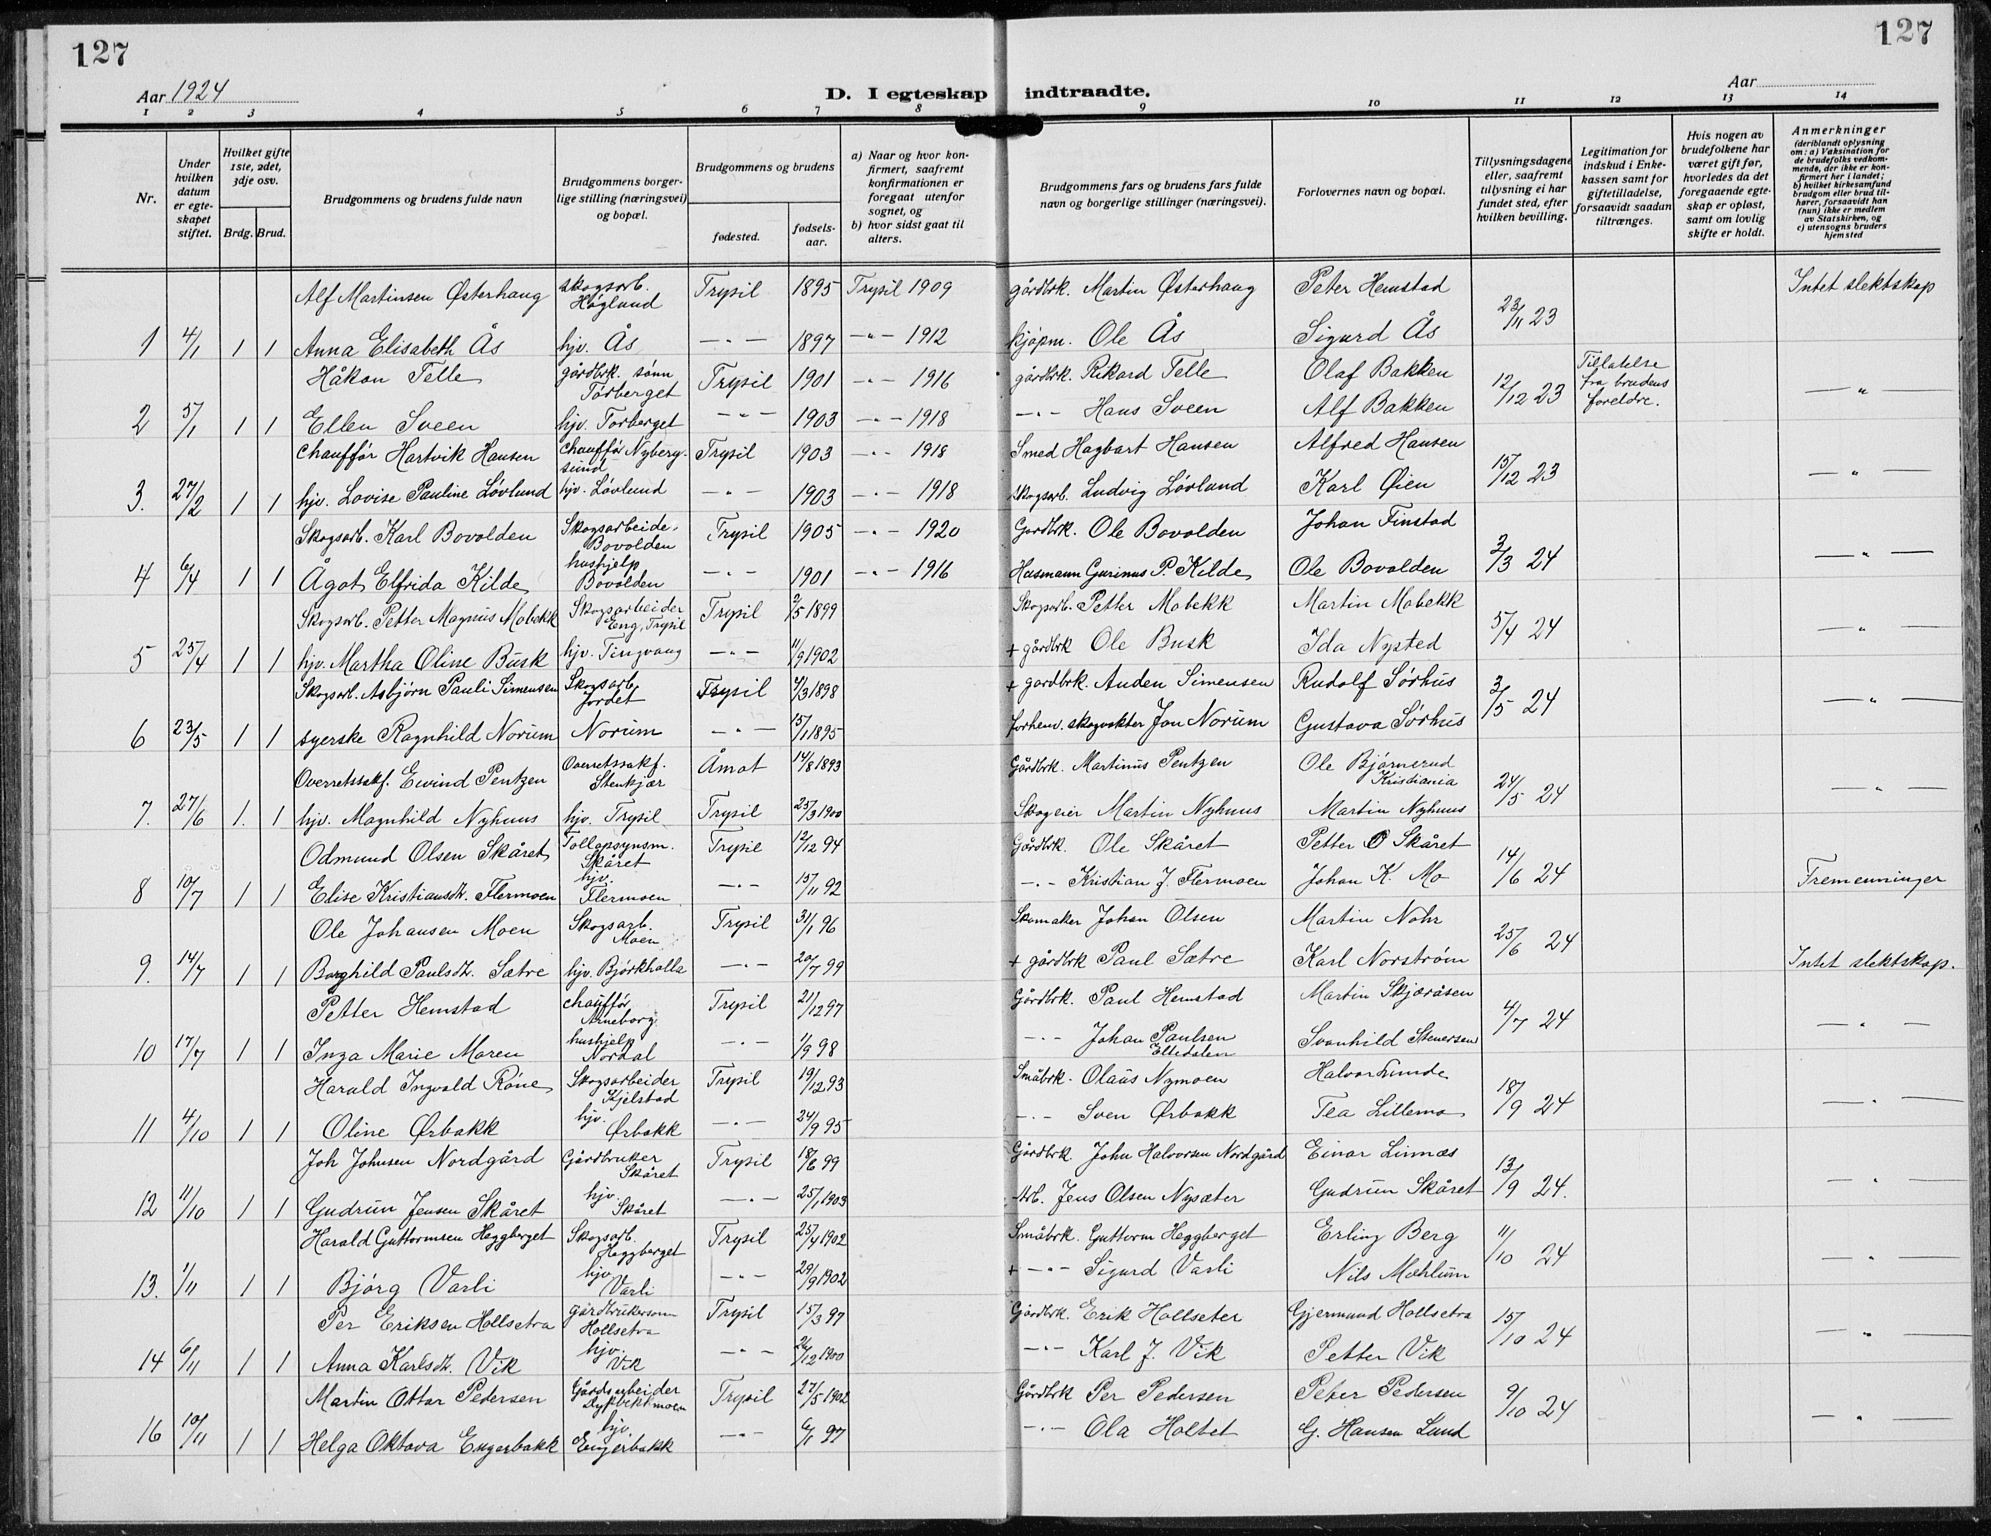 127
127
Aar 1924
D. I egteskap indtraadte.
Aar
1 2 3 4 5 6 7 8 9 10 11 12 13 14
Nr.
Under hvilken datum er egteskapet stiftet.
Hvilket gifte 1ste, 2det, 3dje osv.
Brdg. Brud.
Brudgommens og brudens fulde navn
Brudgommens borgerlige stilling (næringsvei) og bopæl.
Brudgommens og brudens
fødested.
fødselsaar.
a) Naar og hvor konfirmert, saafremt konfirmationen er foregaat utenfor sognet, og
b) hvor sidst gaat til alters.
Brudgommens fars og brudens fars fulde navn og borgerlige stillinger (næringsvei).
Forlovernes navn og bopæl.
Tillysningsdagene eller, saafremt tillysning ei har fundet sted, efter hvilken bevilling.
Legitimation for indskud i Enkekassen samt for giftetilladelse, forsaavidt saadan tiltrænges.
Hvis nogen av brudefolkene har været gift før, hvorledes da det foregaaende egteskap er opløst, samt om lovlig skifte er holdt.
Anmerkninger
(deriblandt oplysning om: a) Vaksination for de brudefolks vedkommende, der ikke er konfirmert her i landet;
b) hvilket kirkesamfund brudgom eller brud tilhører, forsaavidt han (hun) ikke er medlem av Statskirken, og
c) utensogns bruders hjemsted
Alf Martinsen Østerhaug skogsarb. Høglund Trysil 1895 Trysil 1909 gårdbrk. Martin Østerhaug Peter Hemstad 23/11 23 Intet slektskap
1 4/1 1 1 Anna Elisabeth Ås hjv. Ås — " — 1897 — " — 1912 kjøpm. Ole Ås Sigurd Ås
Håkon Telle gårdbrk. sønn Törberget Trysil 1901 — " — 1916 gårdbrk. Rikard Telle Olaf Bakken 12/12 23 Tillatelse fra brudens foreldre. — " —
2 5/1 1 1 Ellen Sveen hjv. Törberget — " — 1903 — " — 1918 — " — Hans Sveen Alf Bakken
Chauffør Hartvik Hansen Chauffør Nybergsund Trysil 1903 — " — 1918 Smed Hagbart Hansen Alfred Hansen 15/12 23 — " —
3. 27/2 1 1 hjv. Lovise Pauline Lövlund hjv. Lövlund — " — 1903 — " — 1918 skogsarb. Ludvig Lövlund Karl Øien
Skogsarb. Karl Bovolden Skogsarbeide. Bovolden Trysil 1905 — " — 1920 Gårdbrk. Ole Bovolden Johan Finstad 3/3 24 — " —
4 6/4 1 1 Ågot Elfrida Kilde hushjelp Bovolden — " — 1901 — " — 1916 Husmann Gurinus P. Kilde Ole Bovolden
Skogsarb. Petter Magnus Mobekk Skogsarbeider Eng, Trysil Trysil 2/5 1899 Skogsarb. Petter Mobekk Martin Mobekk 5/4 24 — " —
5 25/4 1 1 hjv. Martha Oline Busk hjv. Tingvang — " — 11/9 1902 + gårdbrk Ole Busk Ida Nysted
Skogsarb. Asbjørn Pauli Simensen Skogsarb. Jordet Trysil 4/3 1898 + gardbrk. Auden Simensen Rudolf Sörhus 3/5 24 — " —
6 23/5 1 1 syerske Ragnhild Norum Norum — " — 15/1 1895 forhenv. skogvakter Jon Norum Gustava Sörhus
Overretssakf. Eivind Pentzen Overretssakf. Stenkjær Åmot 14/8 1893 Gårdbrk. Martinus Pentzen Ole Bjørnerud Kristiania 24/5 24 — " —
7. 27/6 1. 1 hjv. Magnhild Nyhuus hjv. Trysil Trysil 25/3 1900 Skogeier Martin Nyhuus Martin Nyhuus
Odmund Olsen Skåret Tollopsynsm. Skåret Trysil 12/12 94 Gårdbrk. Ole Skåret Petter O Skåret 14/6 24 Tremenninger
8 10/7 1 1 Elise Kristiansdt. Flermoen hjv. Flermoen — " — 15/11 92 — " — Kristian J. Flermoen Johan K. Mo
Ole Johansen Moen Skogsarb. Moen Trysil 31/1 96 Skomaker Johan Olsen Martin Nohr 25/6 24 Intet slektskap.
9. 14/7 1 1 Borghild Paulsdt. Sætre hjv. Björkholla — " — 20/7 99 + gårdbrk Paul Sætre Karl Norström
Petter Hemstad chauffør Arneborg Trysil 21/12 97 Gårdbrk. Paul Hemstad Martin Skjæråsen 4/7 24 — " —
10 17/7 1 1 Inga Marie Moren hushjelp Nordal — " — 1/9 98 — " — Johan Paulsen Eltedalen Svanhild Stenersen
Harald Ingvald Röne Skogsarbeider Kjelstad Trysil 19/12 93 Småbrk. Olaus Nymoen Halvor Lunde 18/9 24 — " —
11 4/10 1 1 Oline Ørbakk hjv. Ørbakk — " — 24/9 95 — " — Sven Ørbakk Tea Lillemo
Joh Johnsen Nordgård Gårdbruker Skåret Trysil 18/6 99 Gårdbrk. John Halvorsen Nordgård Einar Linnæs 13/9 24. — " —
12 11/10 1 1 Gudrun Jensen Skåret hjv. Skåret — " — 25/1 1903 Arb. Jens Olsen Nysæter Gudrun Skåret
Harald Guttormsen Heggberget Skogsarb. Heggberget Trysil 25/4 1902 Småbrk. Guttorm Heggberget Erling Berg 11/10 24 — " —
13. 1/11 1 1 Bjørg Varli hjv. Varli — " — 29/9 1902 + — " — Sigurd Varli Nils Mæhlum
Per Eriksen Hollsetra gårdbrukersønn Hollsetra Trysil 15/3 97 Gårdbrk. Erik Hollseter Gjermund Hollsetra 15/10 24 — " —
14 6/11 1 1 Anna Karlsdt. Vik hjv. Vik — " — 26/12 1900 — " — Karl J. Vik Petter Vik
Martin Ottar Pedersen Gårdsarbeider Trysil 27/5 1902 Gårdbrk Per Pedersen Peter Pedersen 9/10 24 — " —
16 10/11 1 1 Helga Oktava Engerbakk hjv. Engerbakk — " — 6/1 97 — " — Ola Holtet G. Hansen Lund